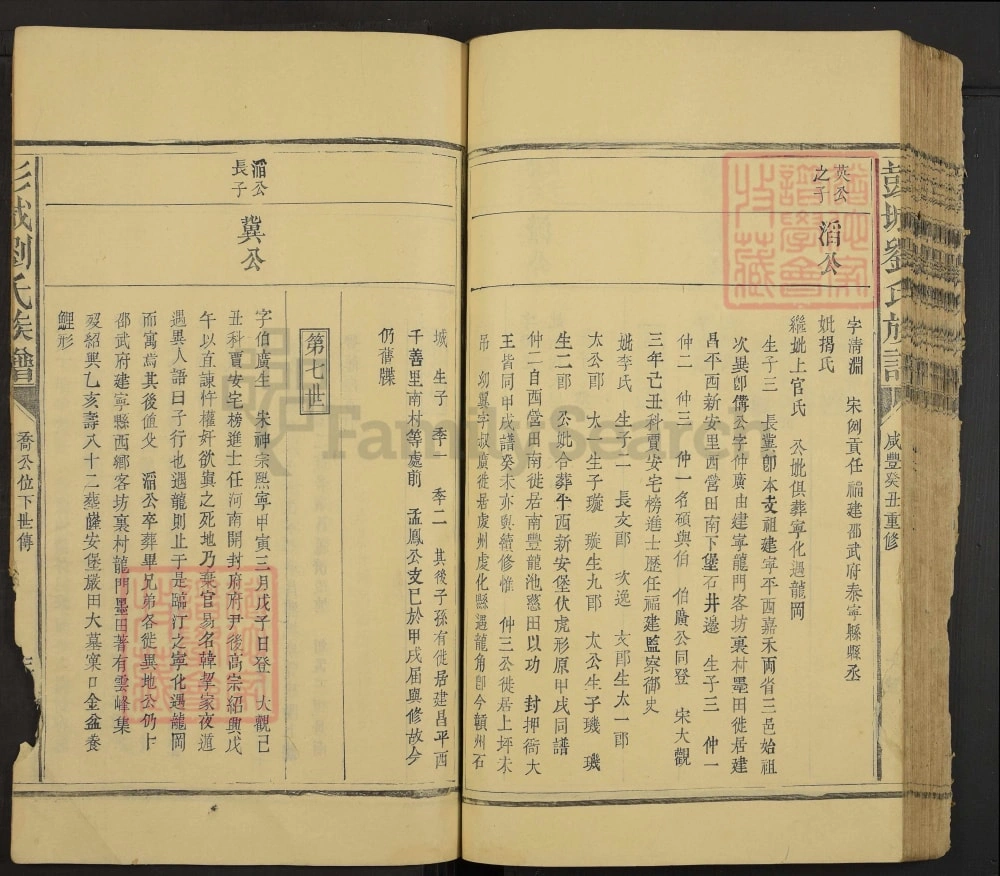 彭城劉氏族譜
咸豐癸丑重修
英公
之子
滔公
字清淵　宋例貢任福建邵武府泰寧縣縣丞
妣揭氏
繼妣上官氏　公妣俱葬寧化遇龍岡
生子三　長冀卽本支祖建寧平西嘉禾兩省三邑始祖
次異卽儁公字仲廣由建寧龍門客坊裏村墨田徙居建
昌平西新安里西營田南下堡石井邊　生子三　仲一
仲二　仲三　仲一名碩與伯　伯廣公同登　宋大觀
三年己丑科賈安宅榜進士歷任福建監察御史
妣李氏　生子二　長文郎　次逸　文郎生太一郎
太公郎　太一生子璇　璇生九郎　太公生子璣　璣
生二郎　公妣合葬平西新安堡伏虎形原甲戌同譜
仲二自西營田南徙居南豐龍池愨田以功　封押衙大
王皆同甲戌譜癸未亦與續修惟　仲三公徙居上坪未
吊　幼翼字叔廣徙居虔州虔化縣遇龍角卽今贛州石
城　生子　季一　季二　其後子孫有徙居建昌平西
千善里南村等處前　孟鳳公支已於甲戌屆與修故今
仍舊牒
第七世
滔公
長子
冀公
字伯廣生　宋神宗熙寧甲寅三月戊子日登　大觀己
丑科賈安宅榜進士任河南開封府府尹後高宗紹興戊
午以直諫忤權奸欲寘之死地乃棄官易名韓挈家夜遁
遇異人語曰子行也遇龍則止于是臨汀之寧化遇龍岡
而寓焉其後值父　滔公卒葬畢兄弟各徙異地公仍卜
邵武府建寧縣西鄉客坊裏村龍門墨田著有雲峰集
歿紹興乙亥壽八十二葬薩安堡嚴田大墓窠口金盆養
鯉形
彭城劉氏族譜
喬公位下世傳
FamilySearch